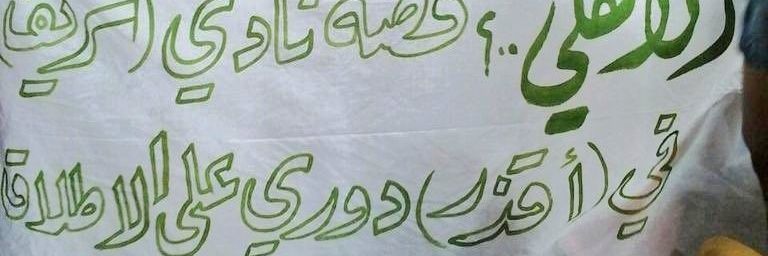 الأهلي .. قصة نادي (كريه)
في (أقذر) دوري على الاطلاق